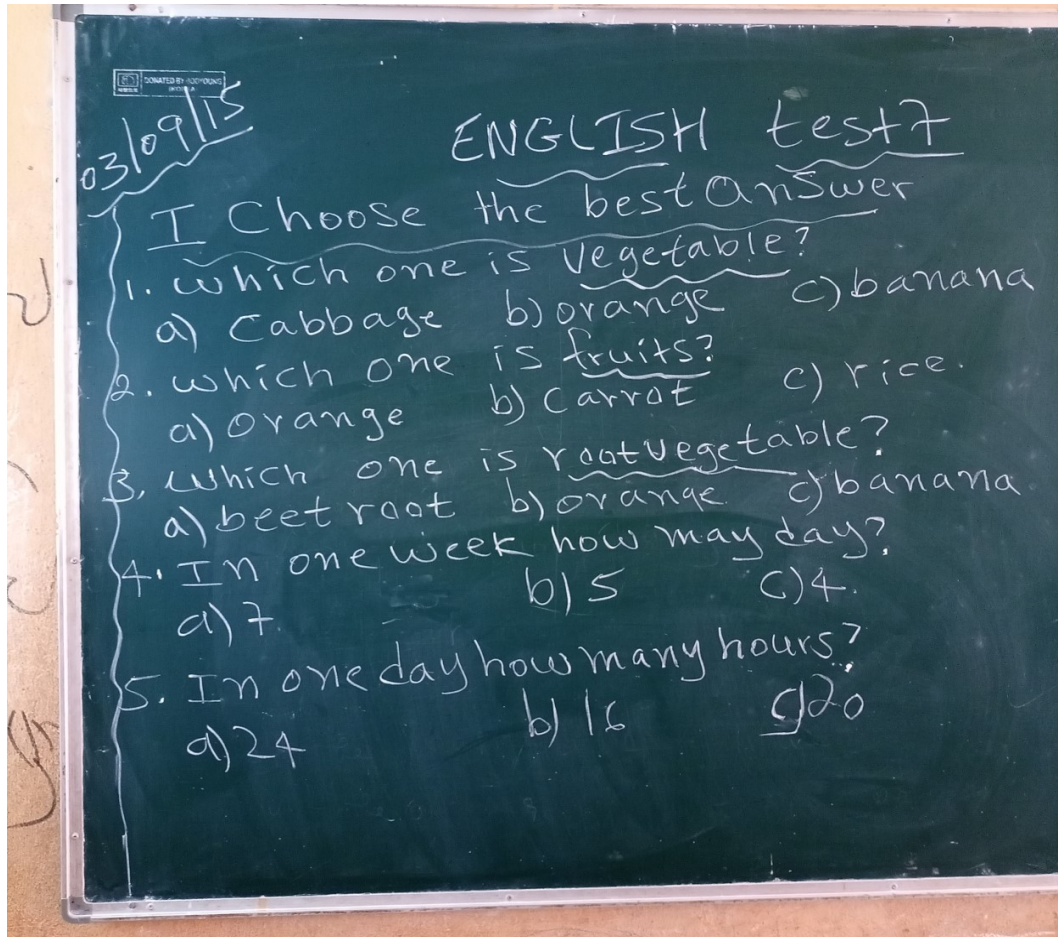 DONATED BY
03/09/15
ENGLISH test7
I Choose the best answer
1. which one is vegetable?
a) cabbage b) orange c) banana
2. which one is fruits?
a) orange b) carrot c) rice.
3. which one is root vegetable?
a) beet root b) orange c) banana
4. In one week how may day?
a) 7. b) 5 c) 4.
5. In one day how many hours?
a) 24 b) 16 c) 20